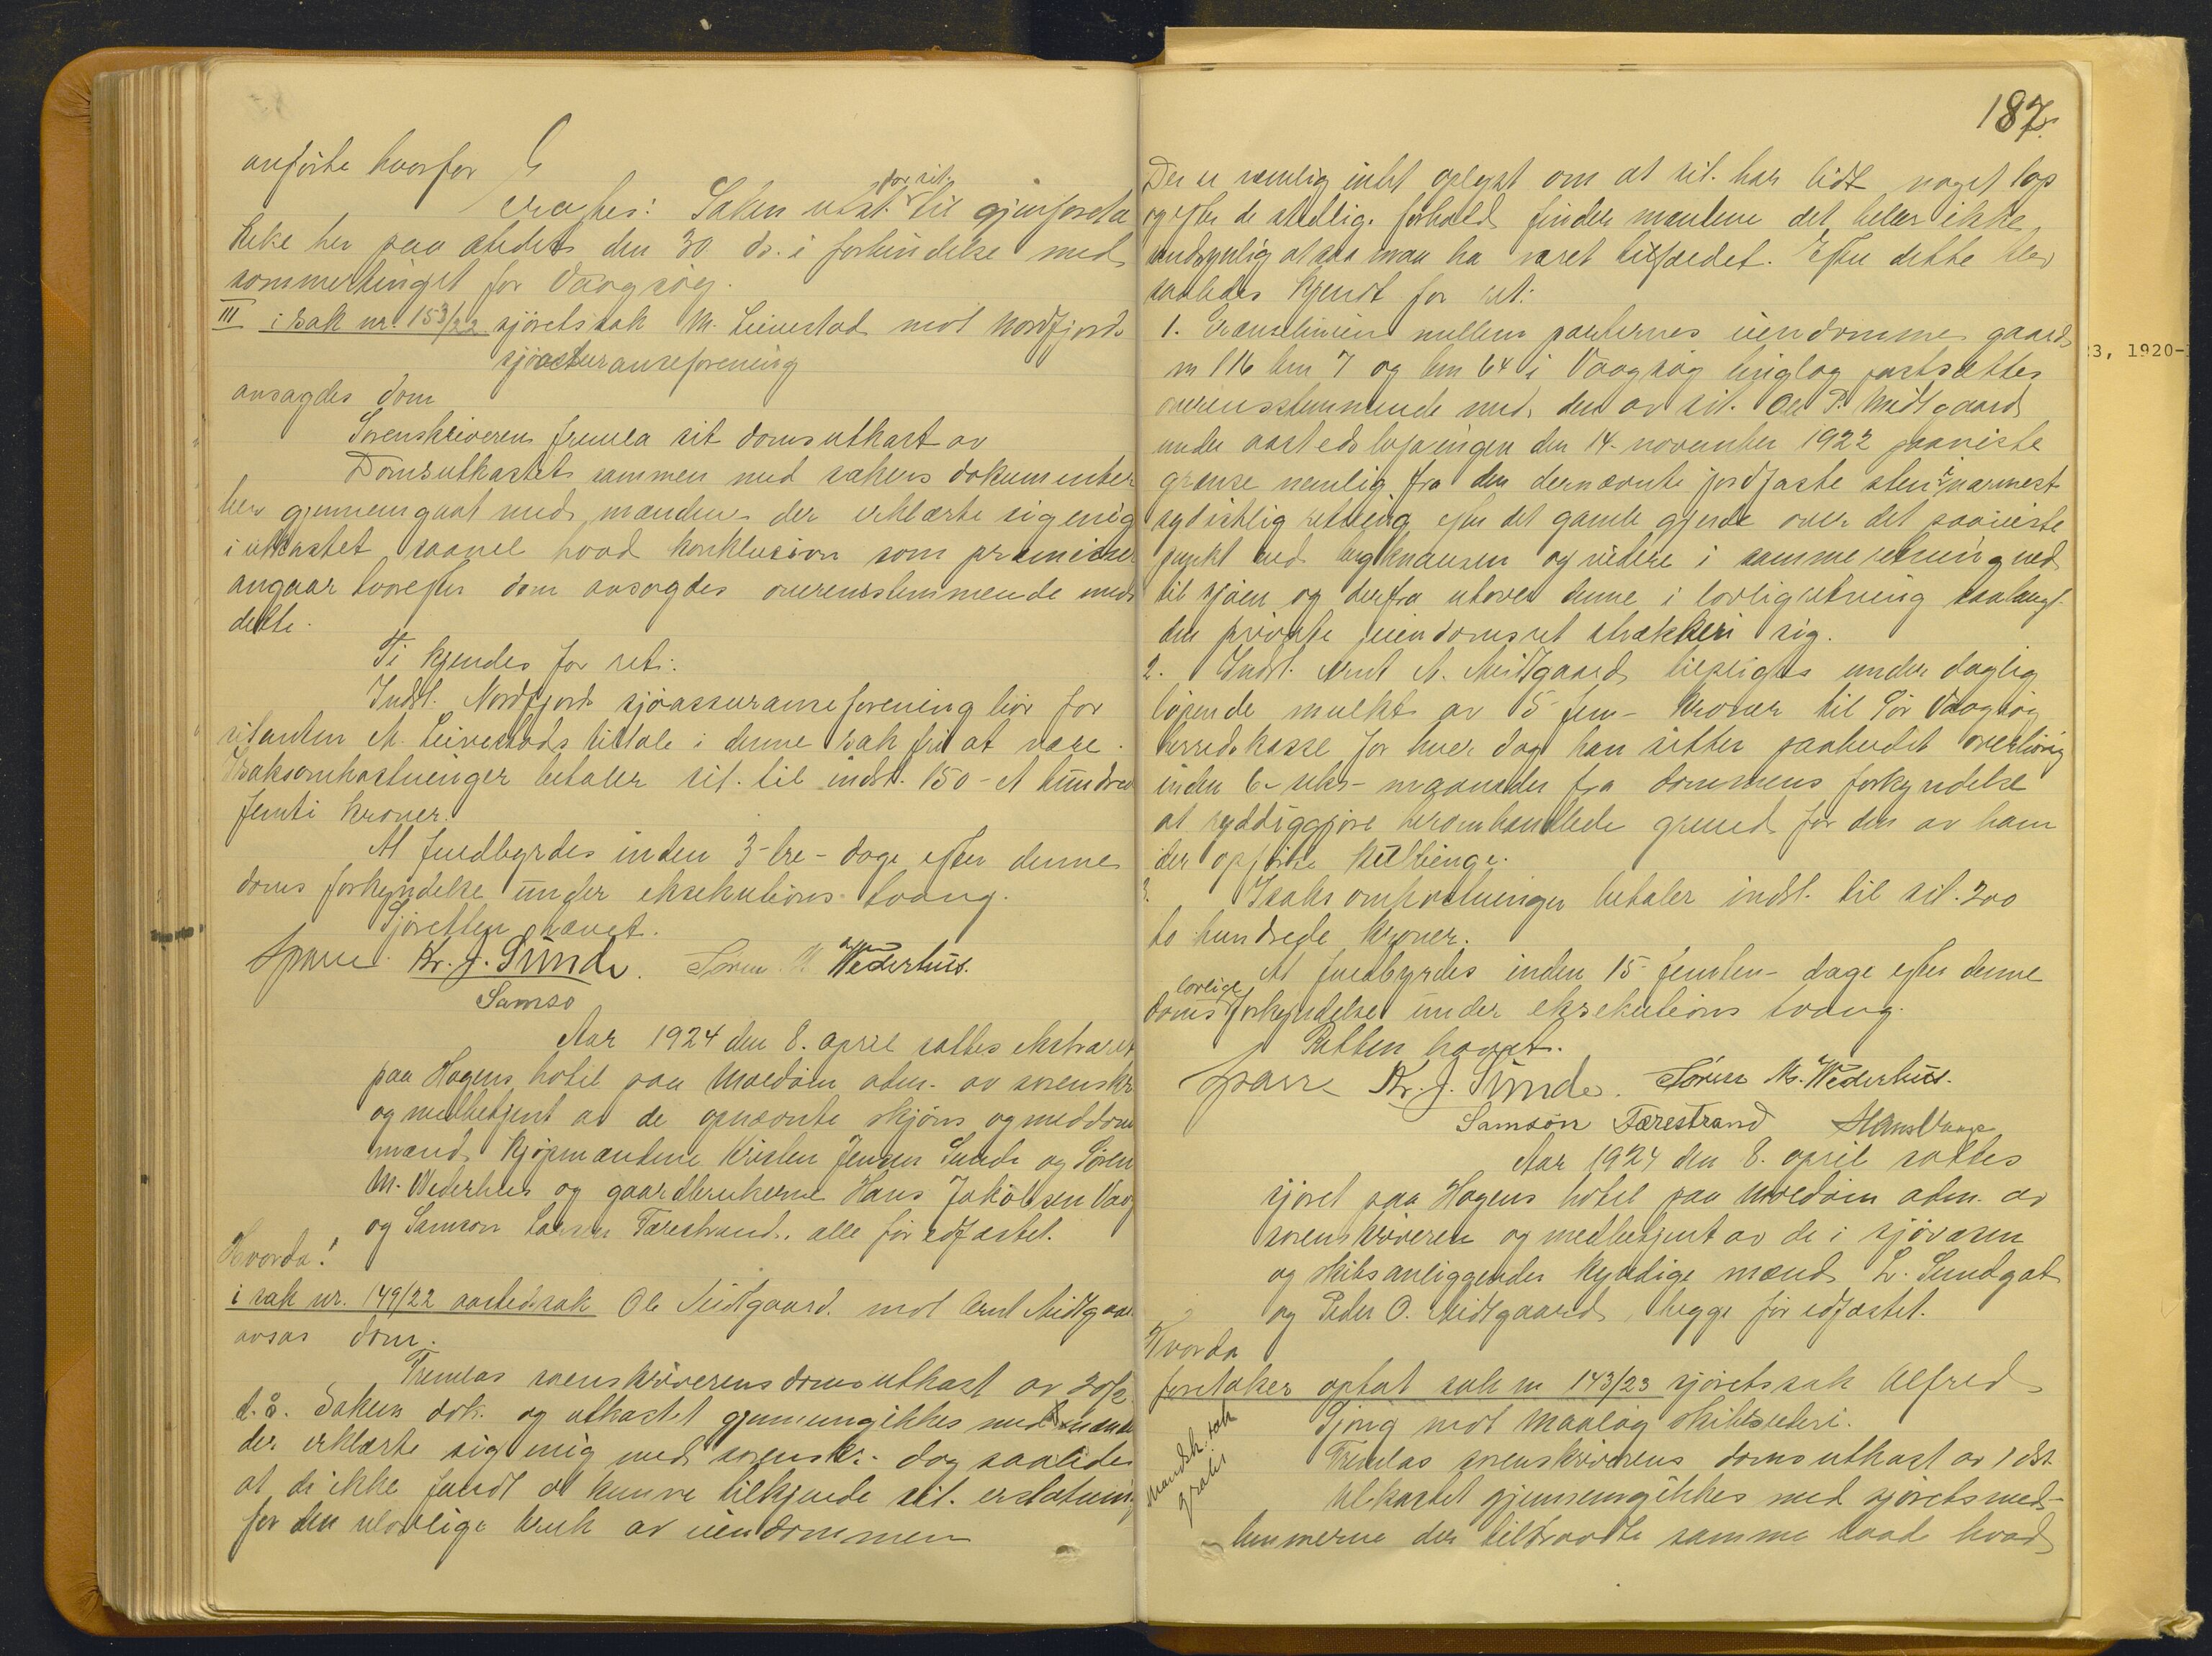 anførte hvorfor
eragtes: Saken utst. for sit. til gjenforeta
telse her paa stedet den 30. ds. i forbindelse med
sommertinget for Vaagsøy.
III i sak nr. 153/22 sjøretssak M. Leirestad mot Nordfjord
sjøassuranseforening
avsagdes dom
Sorenskriveren fremla sit domsutkast av
Domsutkastet sammen med sakens dokumenter
blev gjennemgaat med mændene der erklærte sig enig
i utkastet saavel hvad konklusion som præmisser
angaar hvorefter dom avsagdes overensstemmende med
dette.
Ti kjendes for ret:
Indst. Nordfjord sjøassuranseforening bør for
sitanten M. Leirestads tiltale i denne sak fri at være.
I saksomkostninger betaler sit. til indst. 150 - et hundred
femti kroner.
At fuldbyrdes inden 3 - tre - dage efter denne
doms forkyndelse under eksekutions tvang.
Sjøretten hævet.
Sparre Kr. J. Sunde. Søren M. Wederhus.
Samso
Aar 1924 den 8. april sattes ekstraret
paa Hagens hotel paa Moldøen adm. av sorenskr.
og medbetjent av de opnævnte skjøns og meddoms
mænd kjøpmændene Kristen Jensen Sunde og Søren
M. Wederhus og gaardbrukerne Hans Jakobsen Vaag
og Samson Larsen Færestrand, alle før edfæstet.
Hvorda!
i sak nr. 149/22 aastedssak Ole Midtgaard mot Arnt Midtgaar
avsas dom.
Fremlas sorenskriverens domsutkast av 20/2
d.å. Sakens dok. og utkastet gjennemgikkes med mænde
der erklærte sig enig med sorenskr. dog saaledes
at de ikke fandt at kunne tilkjende sit. erstatning
for den ulovlige bruk av eiendommen
187.
Der er nemlig intet oplyst om at sit. har lidt noget tap
og efter de stedlige forhold finder mændene det heller ikke
sandsynlig at saa maa ha været tilfældet. Efter dette blev
saaledes kjendt for ret:
1. Grænselinien mellem parternes eiendomme gaards
nr 116 bnr 7 og bnr 64 i Vaagsøy tinglag fastsættes
overensstemmende med den av sit. Ole P. Midtgaard
under aastedsbefaringen den 14. november 1922 paaviste
grænse nemlig fra den dernævnte jordfaste sten i nærmest
sydøstlig retning efter det gamle gjerde over det paaviste
punkt ved bergknausen og videre i samme retning ned
til sjøen og derfra utover denne i lovlig retning saalangt
den private eiendomsret strækker sig.
2. Indst. Arnt A. Midtgaard tilpligtes under daglig
løpende mulkt av 5 - fem - kroner til Sør Vaagsøy
herredskasse for hver dag han sitter paabudet overhørig
inden 6 - seks - maaneder fra dommens forkyndelse
at ryddiggjøre heromhandlede grund for den av ham
der opførte kulbinge.
3. I saksomkostninger betaler indst. til sit. 200
to hundrede kroner.
At fuldbyrdes inden 15 - femten - dage efter denne
doms lovlige forkyndelse under eksekutions tvang.
Retten hævet.
Sparre Kr. J. Sunde. Søren M. Wederhus.
Samson Færestrand Hans Vaage
Aar 1924 den 8. april sattes
sjøret paa Hagens hotel paa Moldøen adm. av
sorenskriveren og medbetjent av de i sjøvæsen
og skibsanliggender kyndige mænd L. Sundgot
og Peder O. Midtgaard, begge før edfæstet.
Hvorda
foretakes optat sak nr 143/23 sjøretssak Alfred
Gjøng mot Maaløy skibsrederi.
mandsk. sak
gratis
Fremlas sorenskriverens domsutkast av 1 ds.
Utkastet gjennemgikkes med sjøretsmed-
lemmerne der tiltraadte samme baade hvad
3, 1920-